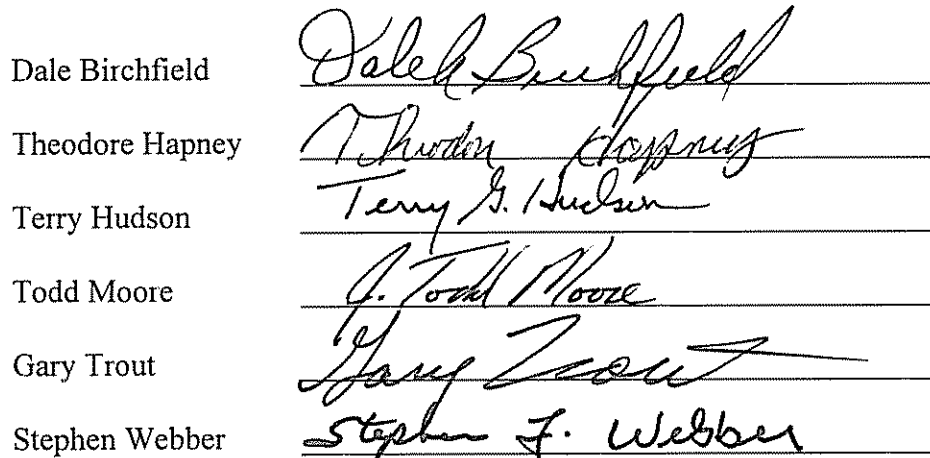 Dale Birchfield Dale A Birchfield
Theodore Hapney Theodore Hapney
Terry Hudson Terry G. Hudson
Todd Moore J. Todd Moore
Gary Trout Gary Trout
Stephen Webber Stephen F. Webber